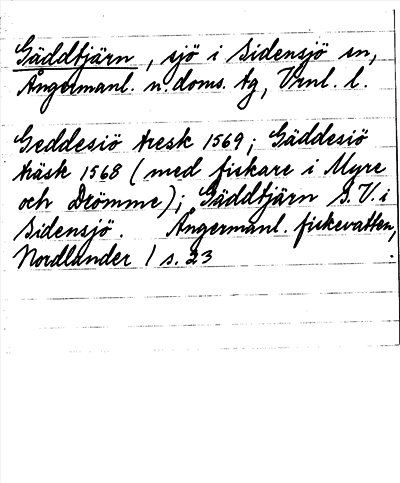 Gäddtjärn, sjö i Sidensjö sn,
Ångermanl. n. doms. tg, Vrnl. l.
Geddesiö tresk 1569; Gäddesiö
träsk 1568 (med fiskare i Myre
och Drömme); Gäddtjärn S.V. i
Sidensjö. Ångermanl. fiskevatten,
Nordlander 1 s. 23.